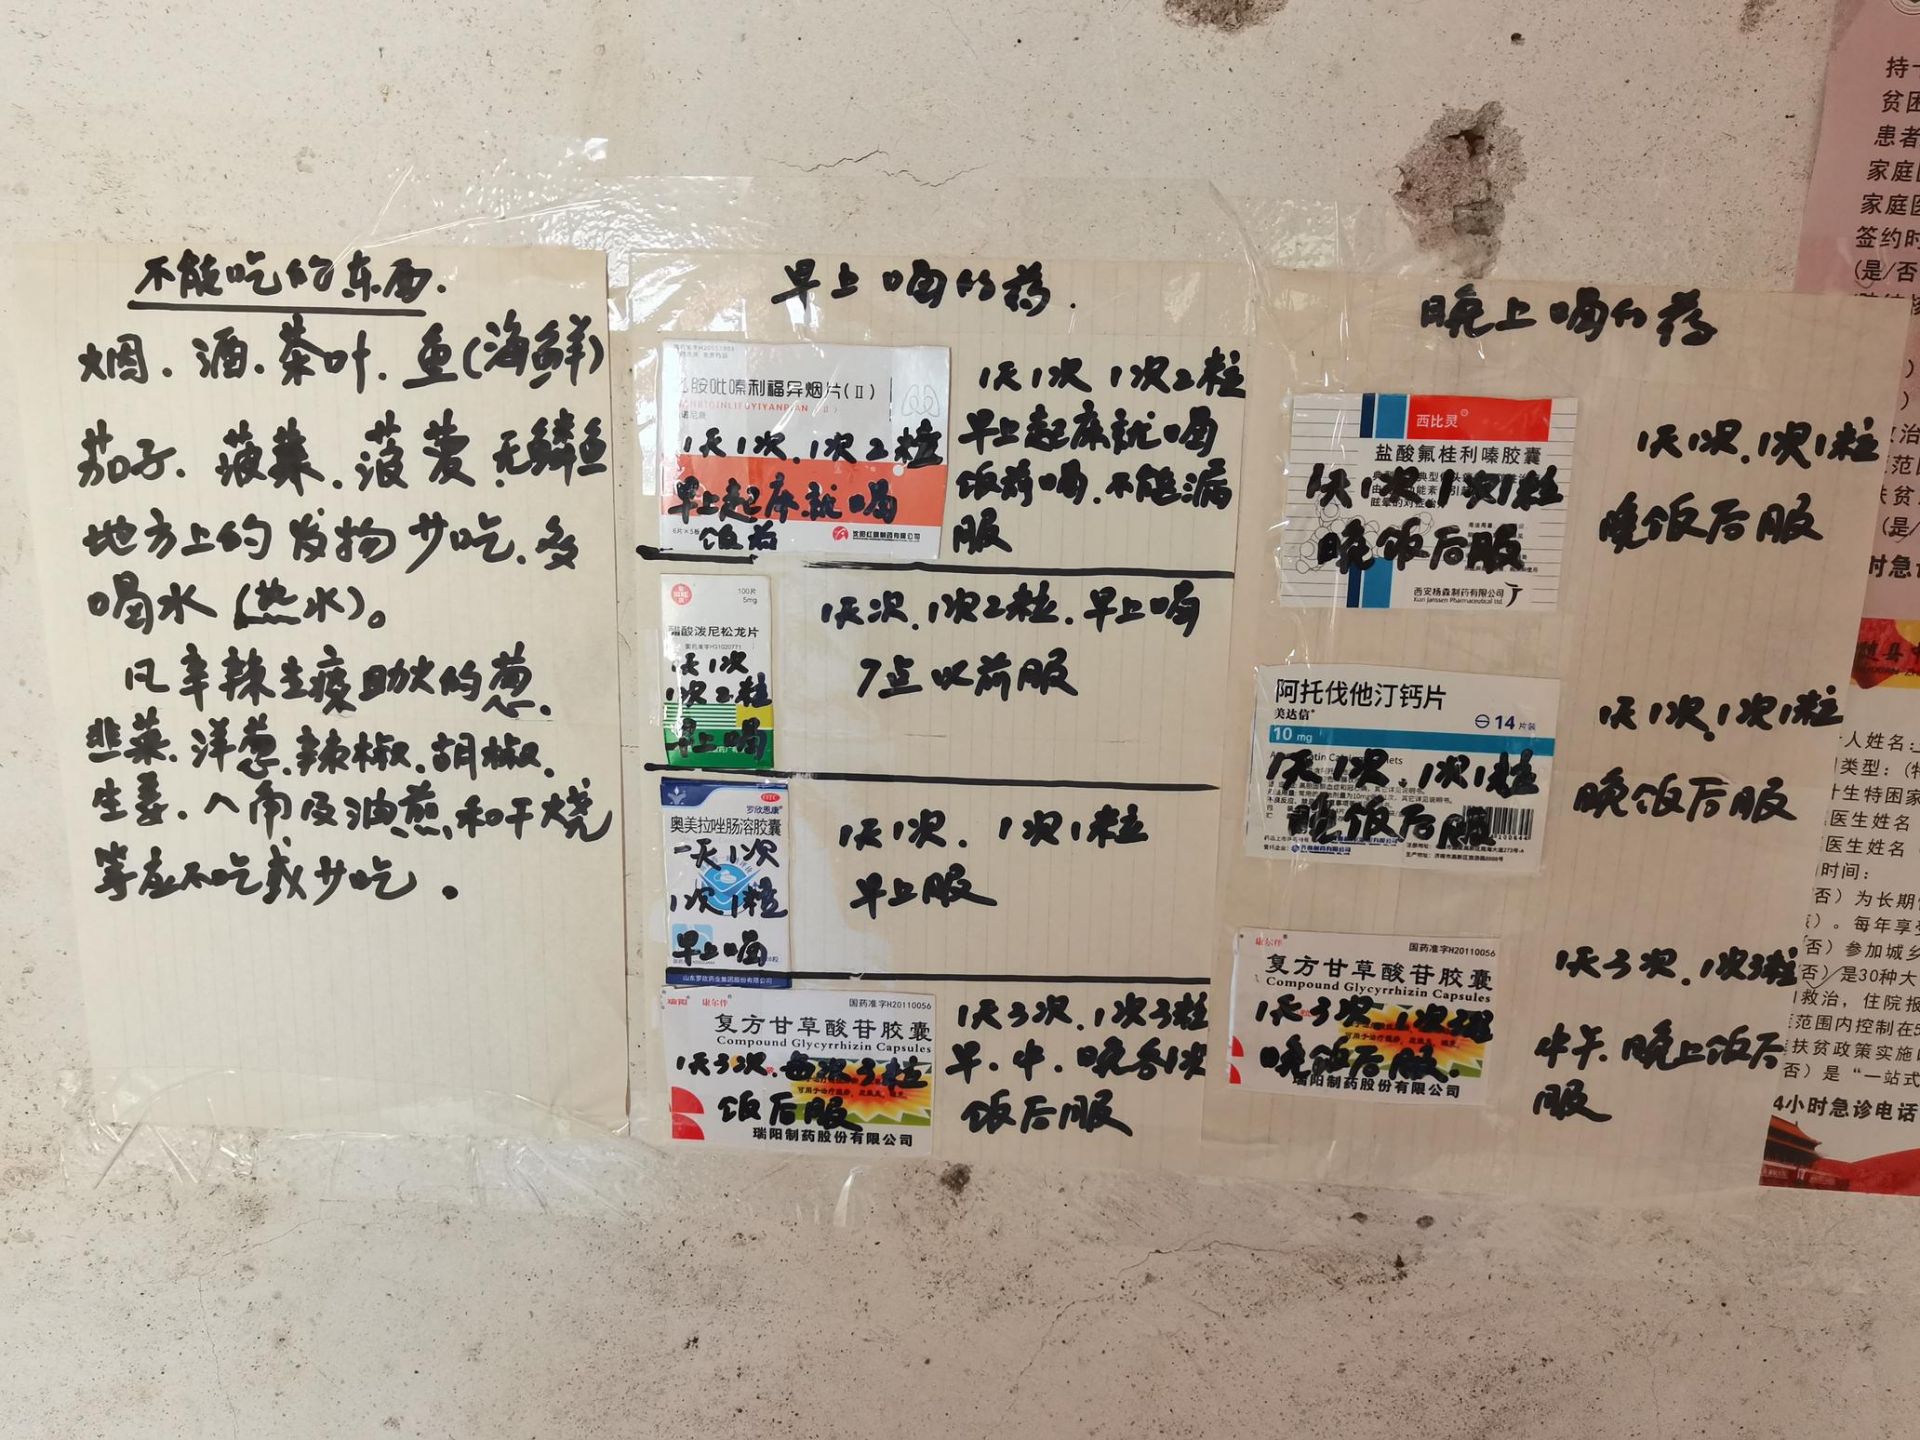 不能吃的东西.
烟.酒.茶叶.鱼(海鲜)
茄子.菠菜.菠萝.无鳞鱼
地方上的发物少吃.多
喝水(热水)。
凡辛辣生痰助火的葱.
韭菜.洋葱.辣椒.胡椒.
生姜.八角及油煎和干烧
等应不吃或少吃。
早上喝的药.
胺吡嗪利福异烟片(Ⅱ)
1天1次.1次2粒
早上起床就喝
饭前
6片×5板
沈阳红旗制药有限公司
1天1次 1次2粒
早上起床就喝
饭前喝.不能漏
服
100片
5mg
醋酸泼尼松龙片
1天1次
1次2粒
早上喝
1天次.1次2粒.早上喝
7点以前服
罗欣恩康
奥美拉唑肠溶胶囊
一天1次
1次1粒
早上喝
山东罗欣药业集团股份有限公司
1天1次. 1次1粒
早上服
瑞阳 康尔伴
国药准字H20110056
复方甘草酸苷胶囊
Compound Glycyrrhizin Capsules
1天3次.每次3粒
饭后服
瑞阳制药股份有限公司
1天3次.1次3粒
早.中.晚各1次
饭后服
晚上喝的药
西比灵
盐酸氟桂利嗪胶囊
1天1次 1次1粒
晚饭后服
西安杨森制药有限公司
Xian Janssen Pharmaceutical Ltd.
1天1次.1次1粒
晚饭后服
阿托伐他汀钙片
美达信
14片装
10 mg
1天1次.1次1粒
晚饭后服
1天1次.1次1粒
晚饭后服
康尔伴
国药准字H20110056
复方甘草酸苷胶囊
Compound Glycyrrhizin Capsules
1天3次 1次3粒
晚饭后服.
瑞阳制药股份有限公司
1天3次.1次3粒
中午.晚上饭后
服
持
贫困
患者
家庭
家庭医
签约时
(是/否
时急
人姓名:
类型:(特
生特困家
医生姓名
医生姓名
时间:
否)为长期
)。每年享
否)参加城乡
否)是30种大
救治,住院报
范围内控制在
扶贫政策实施
否)是“一站式
4小时急诊电话